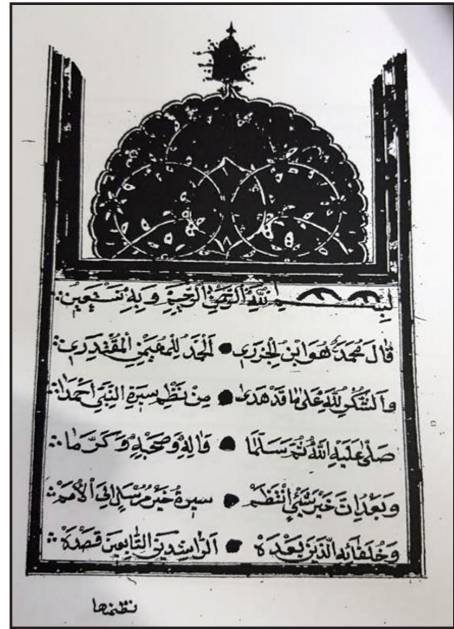 بسم الله الرحمن الرحيم وبه نستعين
قال محمد هو ابن الجزري الحمد للمهيمن المقتدر
والشكر لله على ما قد هدى من نظم سيرة النبي أحمدا
صلى عليه الله ثم سلما وآله وصحبه وكرما
وبعد ان خير شيئ انتظم سيرة خير مرسل إلى الأمم
وخلفائه الذين بعده الراشدين التابعين قصده
نظمتها